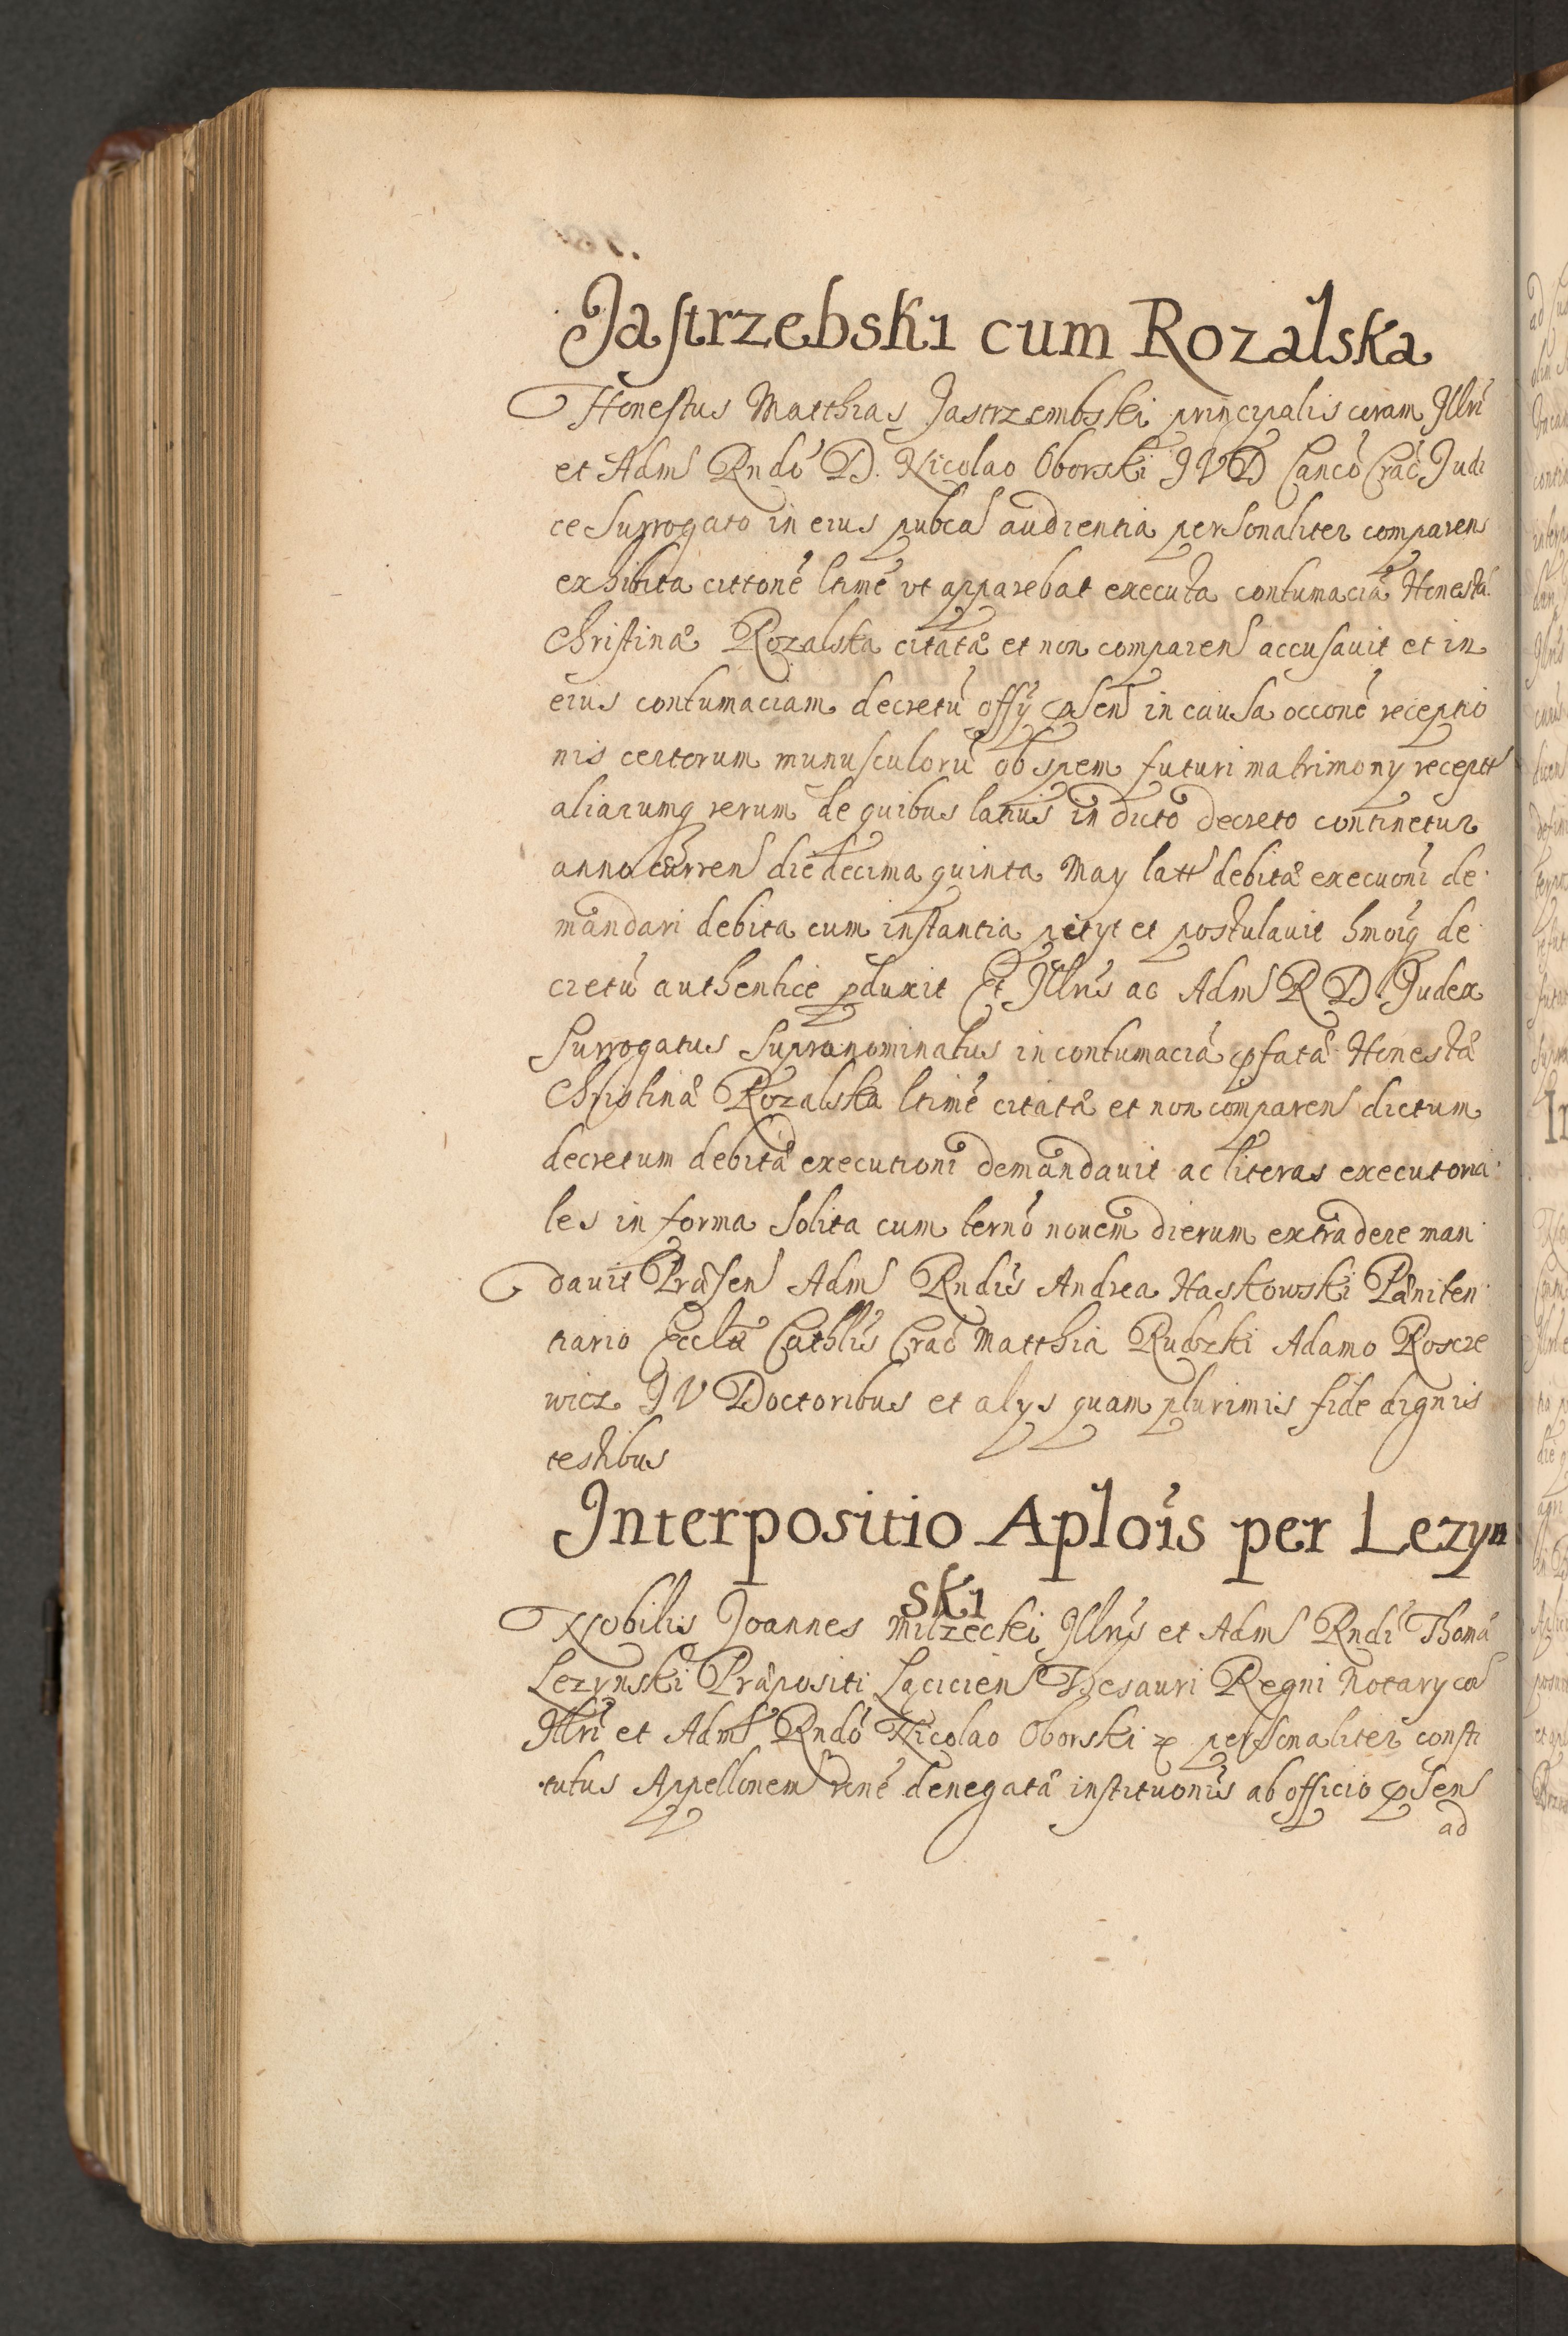 Jastrzebski cum Rozalska
Honestus Matthias Jastrzembski principalis coram Jllri
et Adm Rndo D. Nicolao Oborski J V D Canco Crac Judi
ce Surrogato in eius pubca audientia personaliter comparens
exhibita cittone ltime ut apparebat executa contumacia Honesta
Christinæ Rozalska citatæ et non comparen accusavit et in
eius contumaciam decretu offy psen in causa occone receptio
nis certorum munusculoru ob spem futuri matrimony recept
aliarumq rerum de quibus latius in dicto decreto continetur
anno curren die decima quinta May latt debitæ execuoni de
mandari debita cum instantia petyt et postulavit hmoiq de
cretu authentice pduxit Et Jllris ac Adm R D Judex
Surrogatus Supranominatus in contumacia pfatæ Honestæ
Christinæ Rozalska ltime citatæ et non comparen dictum
decretum debitæ executioni demandavit ac literas executoria
les in forma solita cum termo novem dierum extradere man
davit Præsen Adm Rndis Andrea Haskowski Pæniten
tiario Ecclæ Cathlis Crac Matthia Rudzki Adamo Roscze
wicz J V Doctoribus et alys quam plurimis fide dignis
testibus
Interpositio Aplois per Lezyn
ski
Nobilis Joannes Milzecki Jllris et Adm Rndi Thomæ
Lezynski Præpositi Lacicien Thesauri Regni Notary co
Jllri et Adm Rndo Nicolao Oborski personaliter consti
tutus Appellonem rone denegatæ instituonis ab officio psen
ad